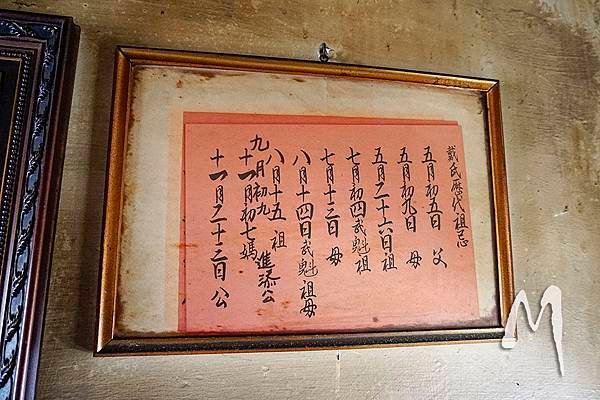 戴氏歷代祖忌
五月初五日 父
五月初九日 母
五月二十六日祖
七月初四武魁祖
七月十三日 母
八月十四日武魁祖母
八月十五 祖
九月初九 進添公
十一月初七媽
十一月二十三日 公
M